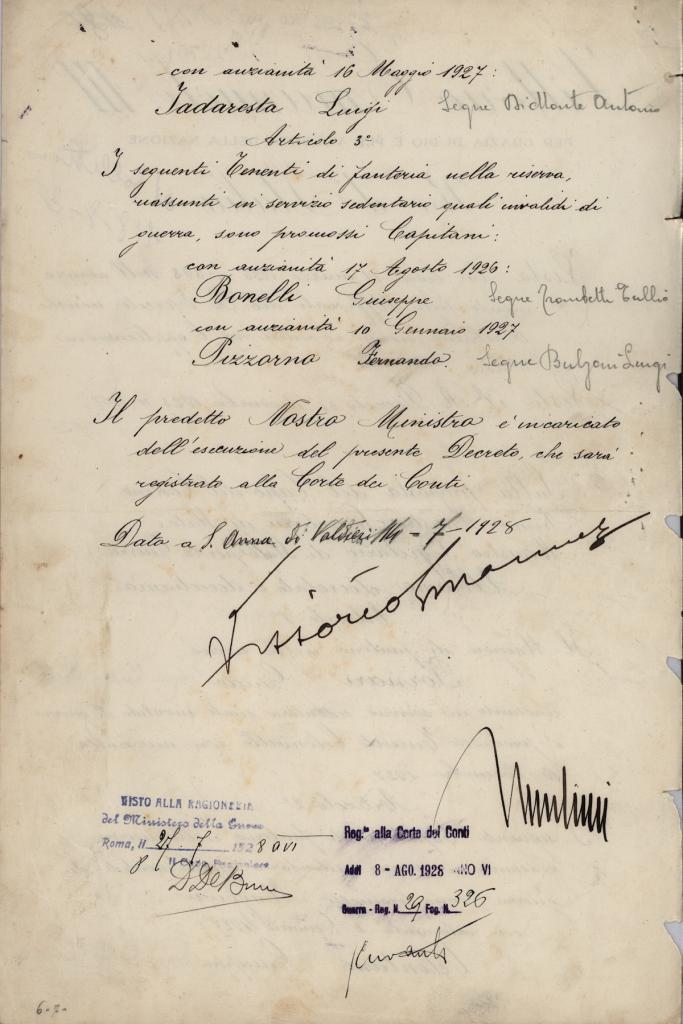 con anzianità 16 Maggio 1927:
Tadaresta Luigi Segue BiMonte Antonio
Articolo 3º
I seguenti Tenenti di fanteria nella riserva,
riassunti in servizio sedentario quali invalidi di
guerra, sono promossi Capitani:
con anzianità 17 Agosto 1926:
Bonelli Giuseppe Segue Trombetti Tullio
con anzianità 10 Gennaio 1927
Pizzorno Fernando. Segue Bulzoni Luigi
Il predetto Nostro Ministro è incaricato
dell'esecuzione del presente Decreto, che sarà
registrato alla Corte dei Conti
Dato a S. Anna di Valdieri - 7 - 1928
Vittorio Emanuele
Mussolini
VISTO ALLA RAGIONERIA
del Ministero della Guerra
Roma, li 27. 7 1928 VI
Il Capo Ragioniere
Reg.to alla Corte dei Conti
Addì 8 - AGO. 1928 ANNO VI
Guerra - Reg. N. 29 Fog. N. 326